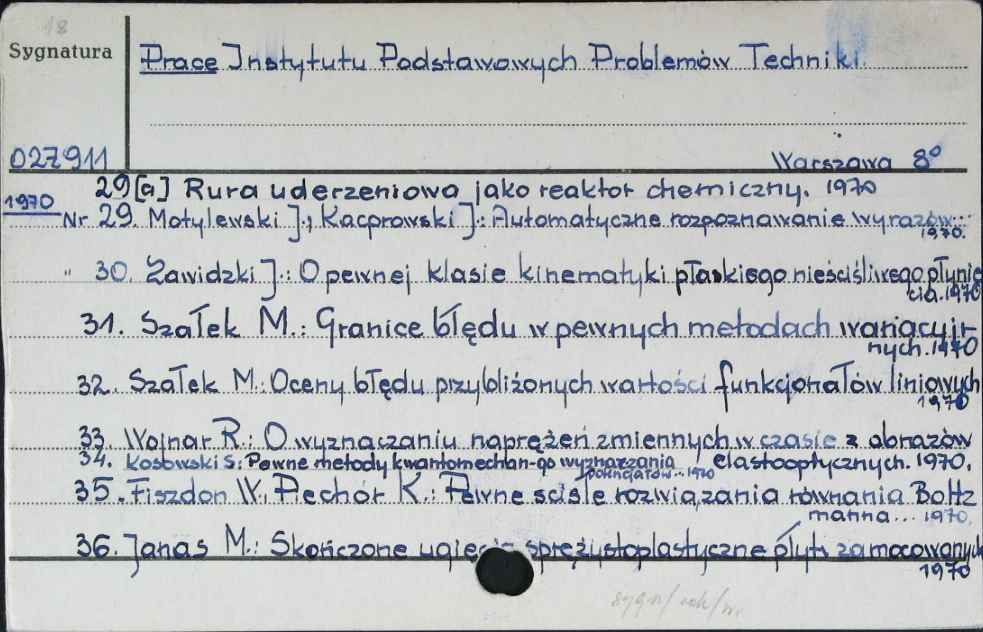 18
Sygnatura
Prace Instytutu Podstawowych Problemów Techniki
027911
Warszawa 8°
29[a] Rura uderzeniowa jako reaktor chemiczny. 1970
1970
Nr 29. Motylewski J.; Kacprowski J.: Automatyczne rozpoznawanie wyrazów...
1970.
" 30. Zawidzki J.: O pewnej klasie kinematyki płaskiego nieściśliwego płynię
cia. 1970
31. Szałek M.: Granice błędu w pewnych metodach wariacyj-
nych. 1970
32. Szałek M.: Oceny błędu przybliżonych wartości funkcjonałów liniowych
1970
33. Wojnar R.: O wyznaczaniu naprężeń zmiennych w czasie z obrazów
elastooptycznych. 1970.
34. Kosowski S: Pewne metody kwantomechan-go wyznaczania
1970
35. Fiszdon W., Pechór K.: Pewne ścisłe rozwiązania równania Boltz
manna... 1970.
36. Janas M.: Skończone ugięcia sprężystoplastyczne płyty zamocowanych
1970